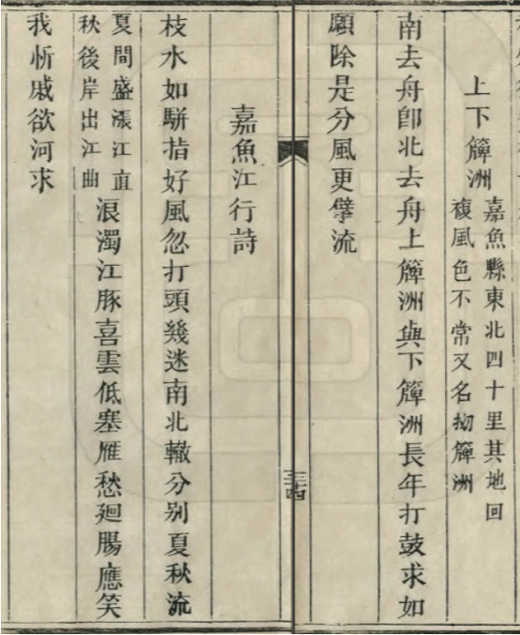 上下簰洲
嘉魚縣東北四十里其地回
複風色不常又名拗簰洲
南去舟卽北去舟上簰洲與下簰洲長年打鼓求如
願除是分風更擘流
嘉魚江行詩
枝水如駢指好風忽打頭幾迷南北轍分别夏秋流
夏間盛漲江直
秋後岸出江曲
浪濁江豚喜雲低塞雁愁廻腸應笑
我忻戚欲河求